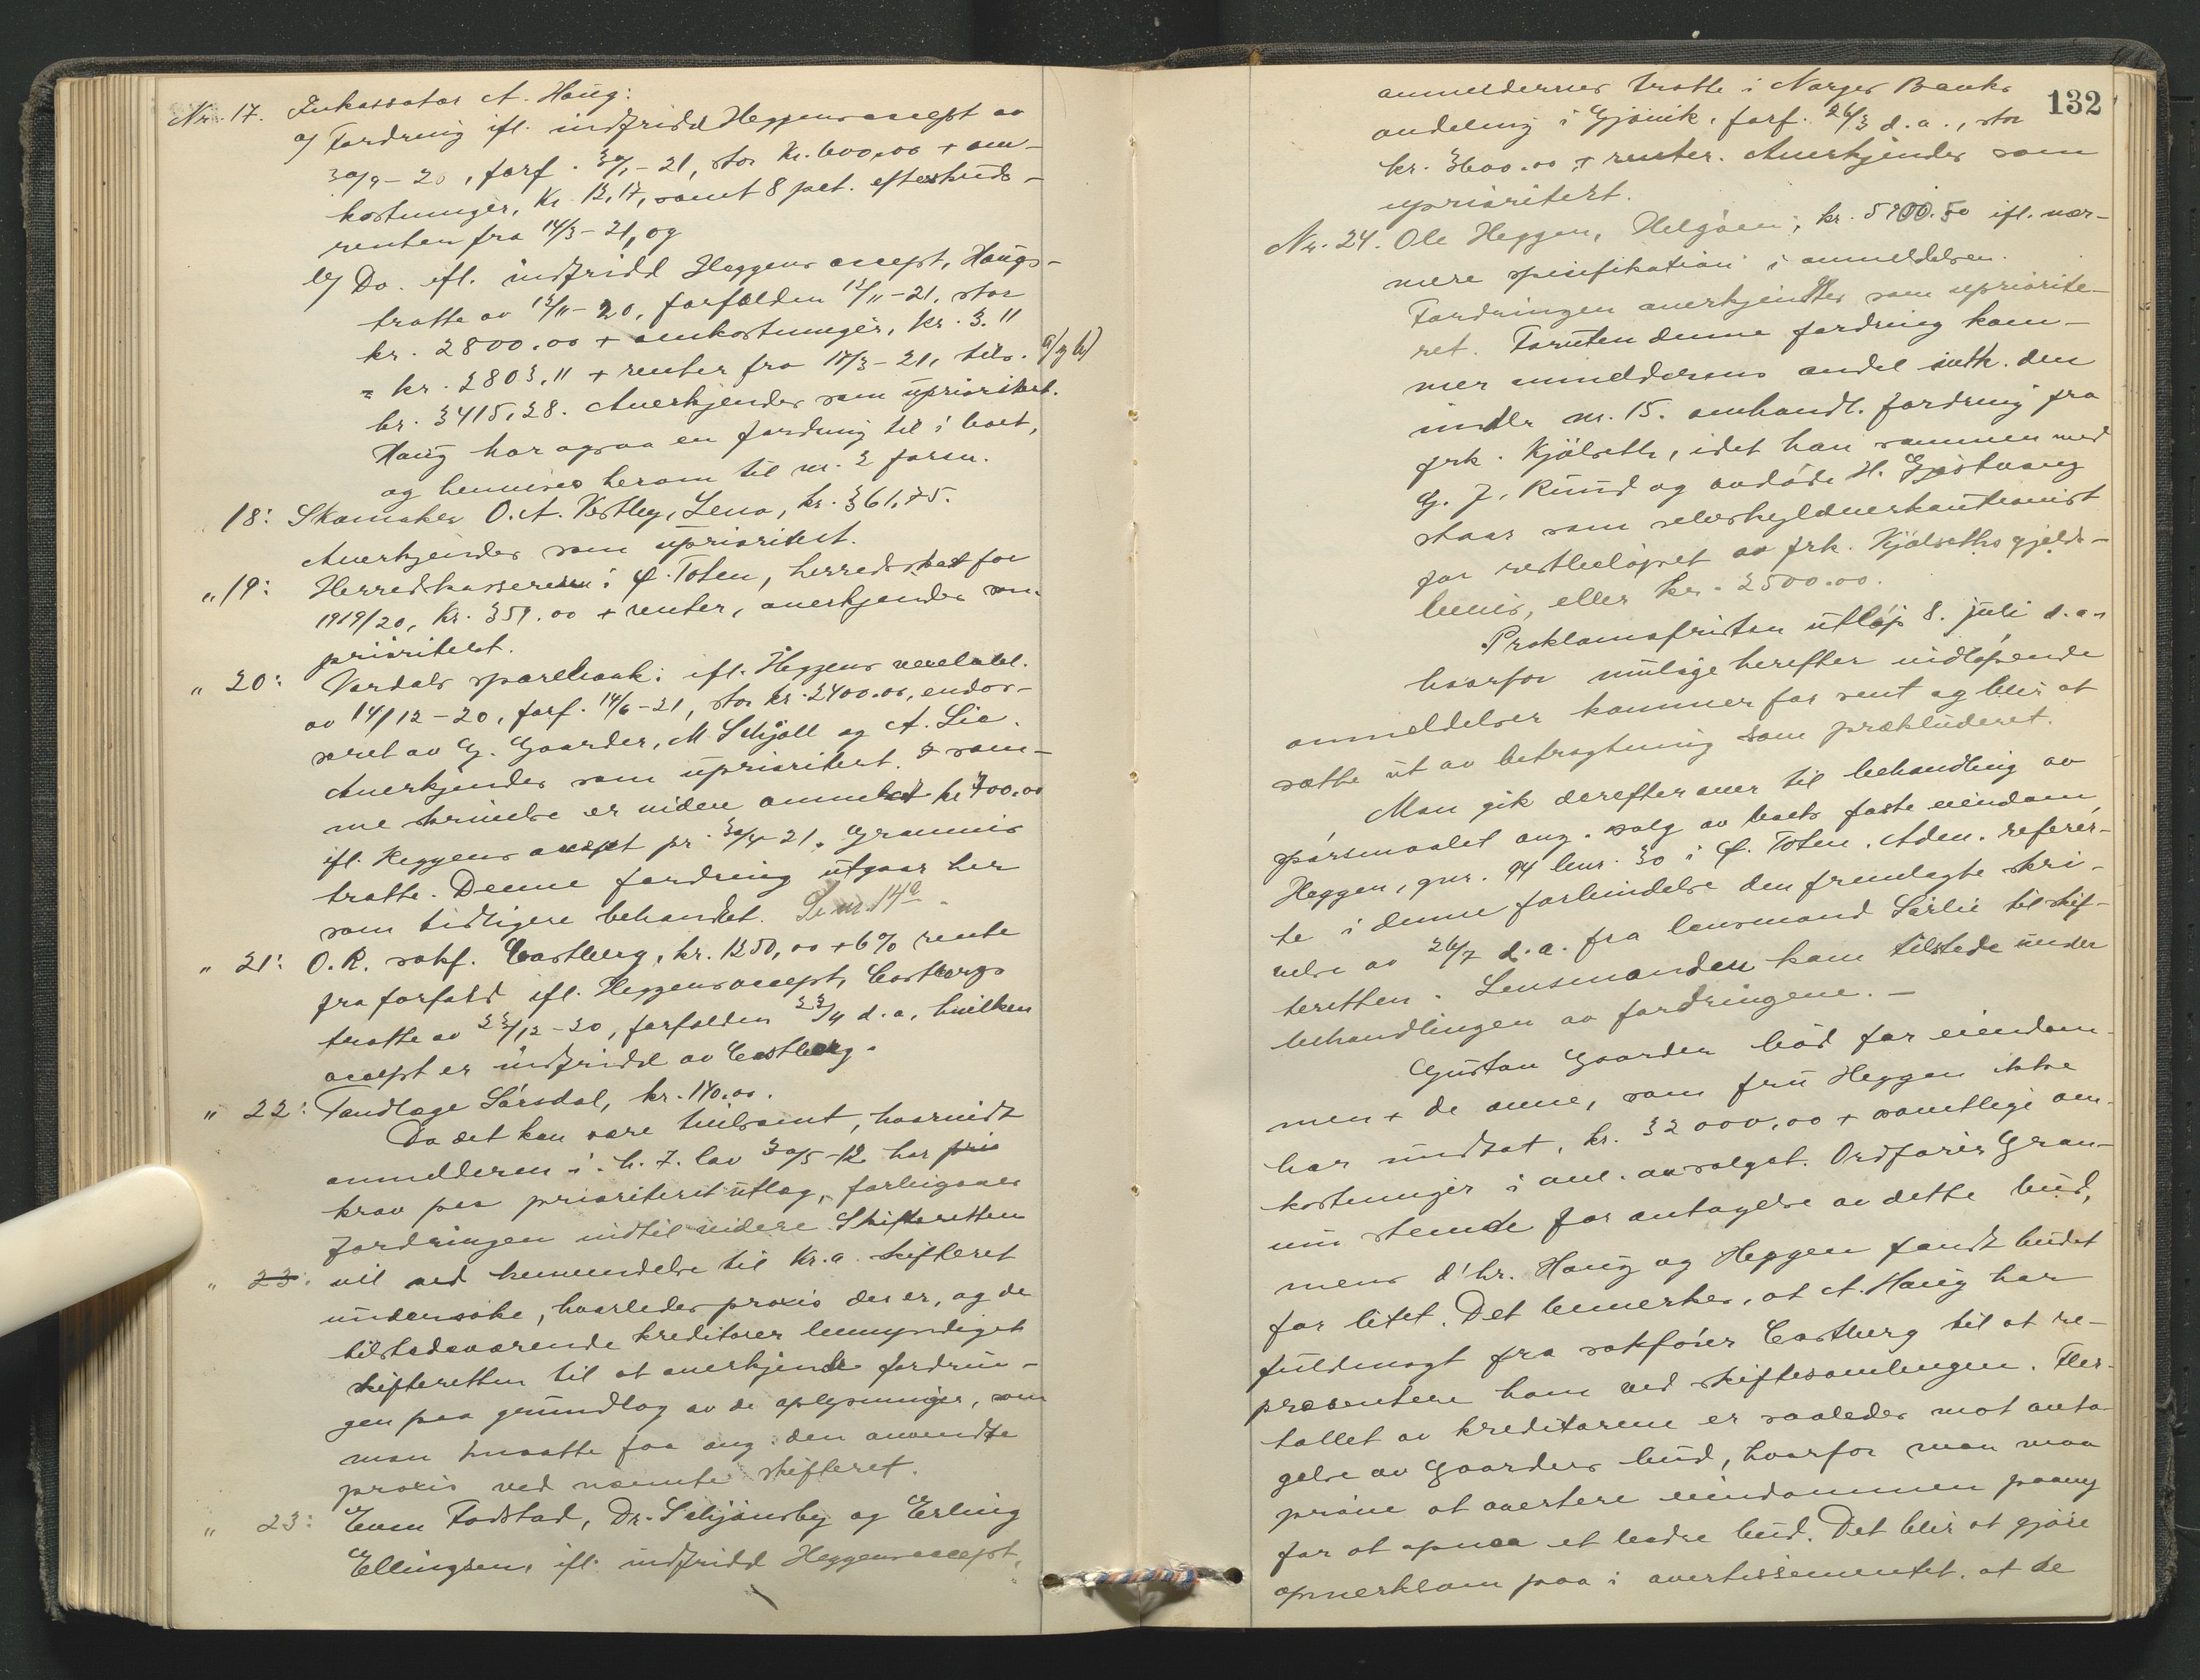 Nr. 17. Inkassator A. Haug:
a) Fordring ifl. indfridd Heggens accept av
30/9-20, forf. 30/1-21, stor kr. 600.00 + om-
kostninger, kr. 13,17, samt 8 pct. efterskuds-
renter fra 14/3-21, og
b) Do. ifl. indfridd Heggens accept, Haugs
tratte av 12/11-20, forfalden 12/11-21, stor
kr. 2800.00 + omkostninger, kr. 3.11
= kr. 2803,11 + renter fra 17/3-21, tils. a) og b)
kr. 3415,28. Anerkjendes som uprioritert.
Haug har ogsaa en fordring til i boet,
og henvises herom til nr. 2 foran.
18: Skomaker O. A. Vestby, Lena, kr. 361,75.
Anerkjendes som uprioritert.
" 19: Herredskassereren i Ø. Toten, herredsskat for
1919/20, kr. 359.00 + renter, anerkjendes som
prioritert.
" 20: Vardals sparebank: ifl. Heggens vexelobl.
av 14/12-20, forf. 14/6-21, stor kr. 2400.00, endos-
seret av G. Gaarder, M Schjøll og A. Lie.
Anerkjendes som uprioritert. I sam-
me skrivelse er videre anmeldt kr 700.00
ifl. Heggens accept pr. 30/4-21. Grannis
tratte. Denne fordring utgaar her
som tidligere behandlet. Se nr. 14a.
" 21: O. R. sakf. Castberg, kr. 1350,00 + 6% rente
fra forfald ifl. Heggens accept, Castbergs
tratte av 23/12-20, forfalden 23/4 d.a. hvilken
accept er indfridd av Castberg.
" 22: Tandlæge Sørsdal, kr. 140.00.
Da det kan være tvilsomt, hvorvidt
anmelderen i. h. t. lov 30/5-12 har
krav paa prioriteret utlæg, forbigaaes
fordringen indtil videre. Skifteretten
" 23: vil ved henvendelse til Kr.a. skifteret
undersøke, hvorledes praxis der er, og de
tilstedeværende kreditorer bemyndiget
skifteretten til at anerkjende fordrin-
gen paa grundlag av de oplysninger, som
man maatte faa ang. den anvendte
praxis ved nævnte skifteret.
" 23: Even Fodstad, Dr. Schjønsby og Erling
Ellingsen, ifl. indfridd Heggens accept,
132
anmeldernes tratte i Norges Banks
avdeling i Gjøvik, forf. 26/3 d.a., stor
kr. 3600.00 + renter. Anerkjendes som
uprioritert.
Nr. 24. Ole Heggen, Helgøen, kr. 5900.50 ifl. nær-
mere spesifikation i anmeldelsen.
Fordringen anerkjendtes som upriorite-
ret. Foruten denne fordring kom-
mer anmelderens andel i den
under nr. 15. omhandl. fordring fra
frk. Kjølseth, idet han sammen med
G. J. Rund og avdøde H. Gjøstvang
staar som selvskyldnerkautionist
for restbeløpet av frk. Kjølseths gjelds-
bevis, eller kr. 2500.00.
Proklamafristen utløp 8. juli d.a.
hvorfor mulige herefter indløpende
anmeldelser kommer for sent og blir at
sætte ut av betragtning som prækluderet.
Man gik derefter over til behandling av
spørsmaalet ang. salg av boets faste eiendom,
Heggen, gnr. 94 bnr. 30 i Ø. Toten. Adm. referer-
te i denne forbindelse den fremlagte skri-
velse av 26/7 d.a. fra lensmand Sørlie til skif-
teretten. Lensmanden kom tilstede under
behandlingen av fordringene. –
Gustav Gaarder bød for eiendom-
men + de ovne, som fru Heggen ikke
har undtat, kr. 32 000,00 + samtlige om-
kostninger i anl. av salget. Ordfører Gran-
um stemte for antagelse av dette bud,
mens d'hr. Haug og Heggen fandt budet
for litet. Det bemerkes, at A. Haug har
fuldmagt fra sakfører Castberg til at re-
præsentere ham ved skiftesamlingen. Fler-
tallet av kreditorene er saaledes mot anta-
gelse av Gaarders bud, hvorfor man maa
prøve at avertere eiendommen paany
for at opnaa et bedre bud. Det blir at gjøre
opmerksom paa i avertissementet, at de